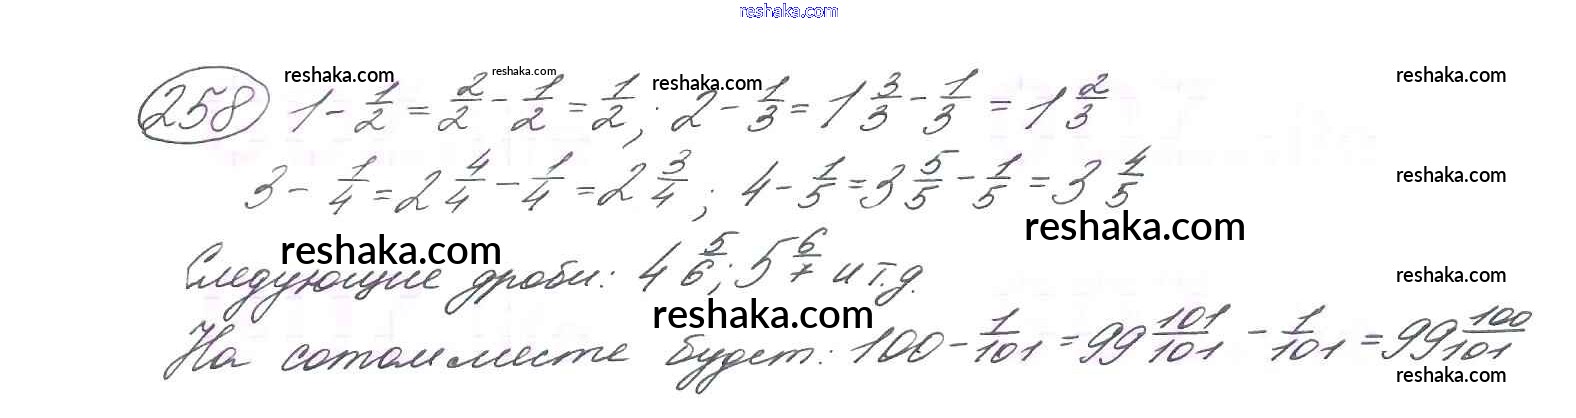 reshaka.com
reshaka.com reshaka.com reshaka.com reshaka.com
258 1 - 1/2 = 2/2 - 1/2 = 1/2; 2 - 1/3 = 1 3/3 - 1/3 = 1 2/3
3 - 1/4 = 2 4/4 - 1/4 = 2 3/4; 4 - 1/5 = 3 5/5 - 1/5 = 3 4/5
reshaka.com
reshaka.com reshaka.com
Следующие дроби: 4 5/6; 5 6/7 и т.д.
reshaka.com
reshaka.com
На сотом месте будет: 100 - 1/101 = 99 101/101 - 1/101 = 99 100/101
reshaka.com